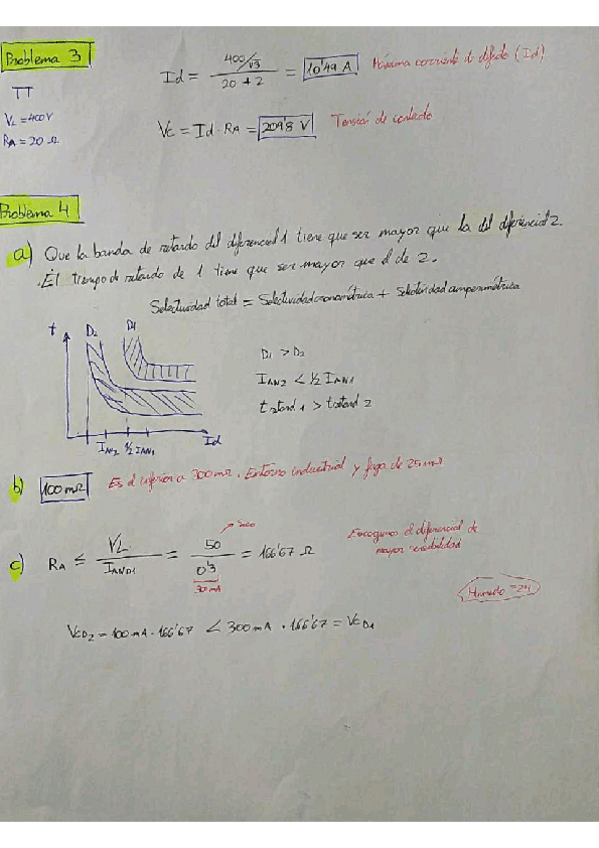 Problema 3
TT
VL = 400V
RA = 20 Ω
Id = 400/√3 / 20 + 2 = 10'49 A Máxima corriente de defecto (Id)
Vc = Id · RA = 209'8 V Tensión de contacto
Problema 4
a) Que la banda de retardo del diferencial 1 tiene que ser mayor que la del diferencial 2.
. El tiempo de retardo de 1 tiene que ser mayor que el de 2.
Selectividad total = Selectividad cronométrica + Selectividad amperimétrica
t D2 D1
D1 > D2
IΔN2 < 1/2 IΔN1
t retard 1 > t retard 2
IΔN2 1/2 IΔN1 Id
b) 100 mA Es el inferior a 300 mA. Entorno industrial y fuga de 25 mA
c) RA ≤ VL / IΔND1 = 50 / 0'3 = 166'67 Ω
Seco
300 mA
Escogemos el diferencial de
mayor sensibilidad
Humedo = 24
VCD2 = 100 mA · 166'67 < 300 mA · 166'67 = VCD1